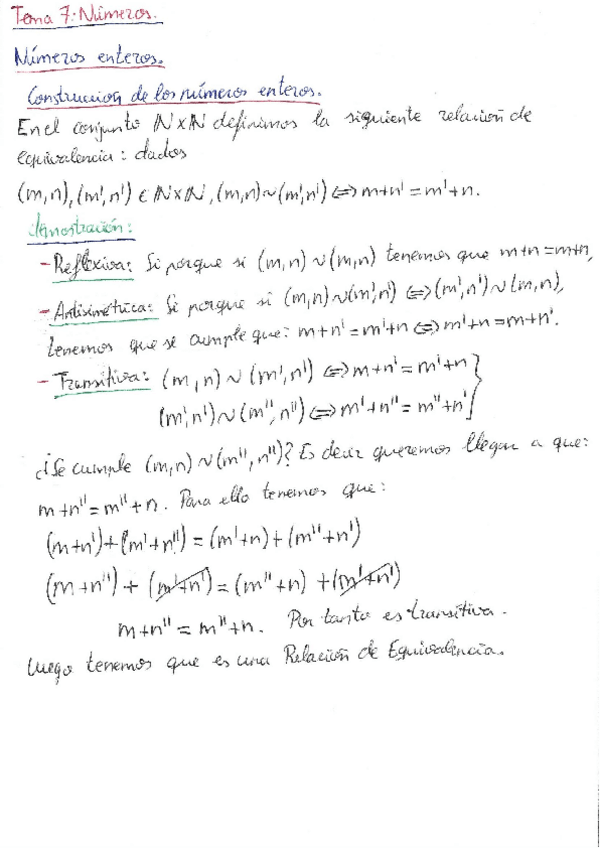 Tema 7: Números.
Números enteros.
Construccion de los números enteros.
En el conjunto ℕxℕ definimos la siguiente relación de
equivalencia: dados
(m,n), (m',n') ∈ ℕxℕ, (m,n)~(m',n') ⟺ m+n' = m'+n.
Demostración:
- Reflexiva: Si porque si (m,n) ~ (m,n) tenemos que m+n=m+n,
- Antisimétrica: Si porque si (m,n)~(m',n') ⟺ (m',n') ~ (m,n),
tenemos que se cumple que: m+n' = m'+n ⟺ m'+n = m+n'.
- Transitiva: (m,n) ~ (m',n') ⟺ m+n' = m'+n }
(m',n') ~ (m'',n'') ⟺ m'+n'' = m''+n' }
¿Se cumple (m,n) ~ (m'',n'')? Es decir queremos llegar a que:
m+n'' = m''+n. Para ello tenemos que:
(m+n')+(m'+n'') = (m'+n)+(m''+n')
(m+n'') + (m'+n') = (m''+n) + (m'+n')
m+n'' = m''+n. Por tanto es transitiva.
Luego tenemos que es una Relación de Equivalencia.